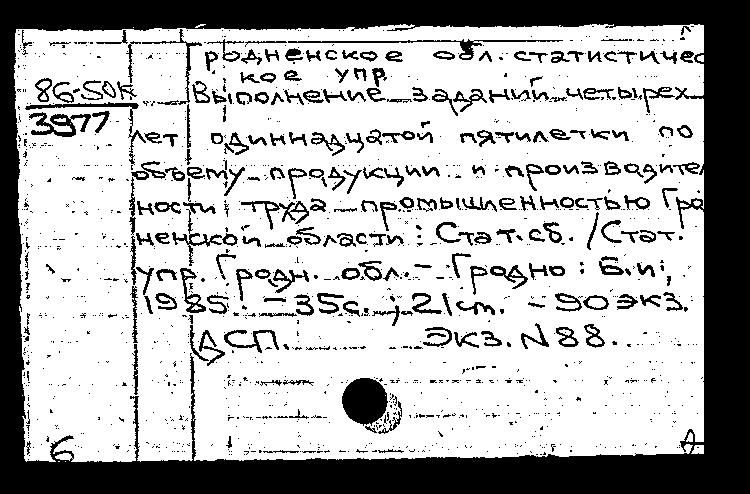 Гродненское обл. статистичес
кое упр.
86-50к
Выполнение заданий четырех
3977
лет одиннадцатой пятилетки по
объему продукции и производите
ности труда промышленностью Гро
ненской области : Стат. сб. / Стат.
упр. Гродн. обл. - Гродно : Б.и.,
1985. - 35с. ; 21 см. - 90 экз.
ДСП. Экз. N 88.
6